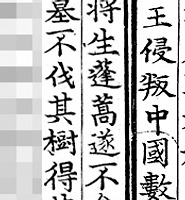 王侵叛中國數
將生蓬蒿遂不
墓不伐其樹得